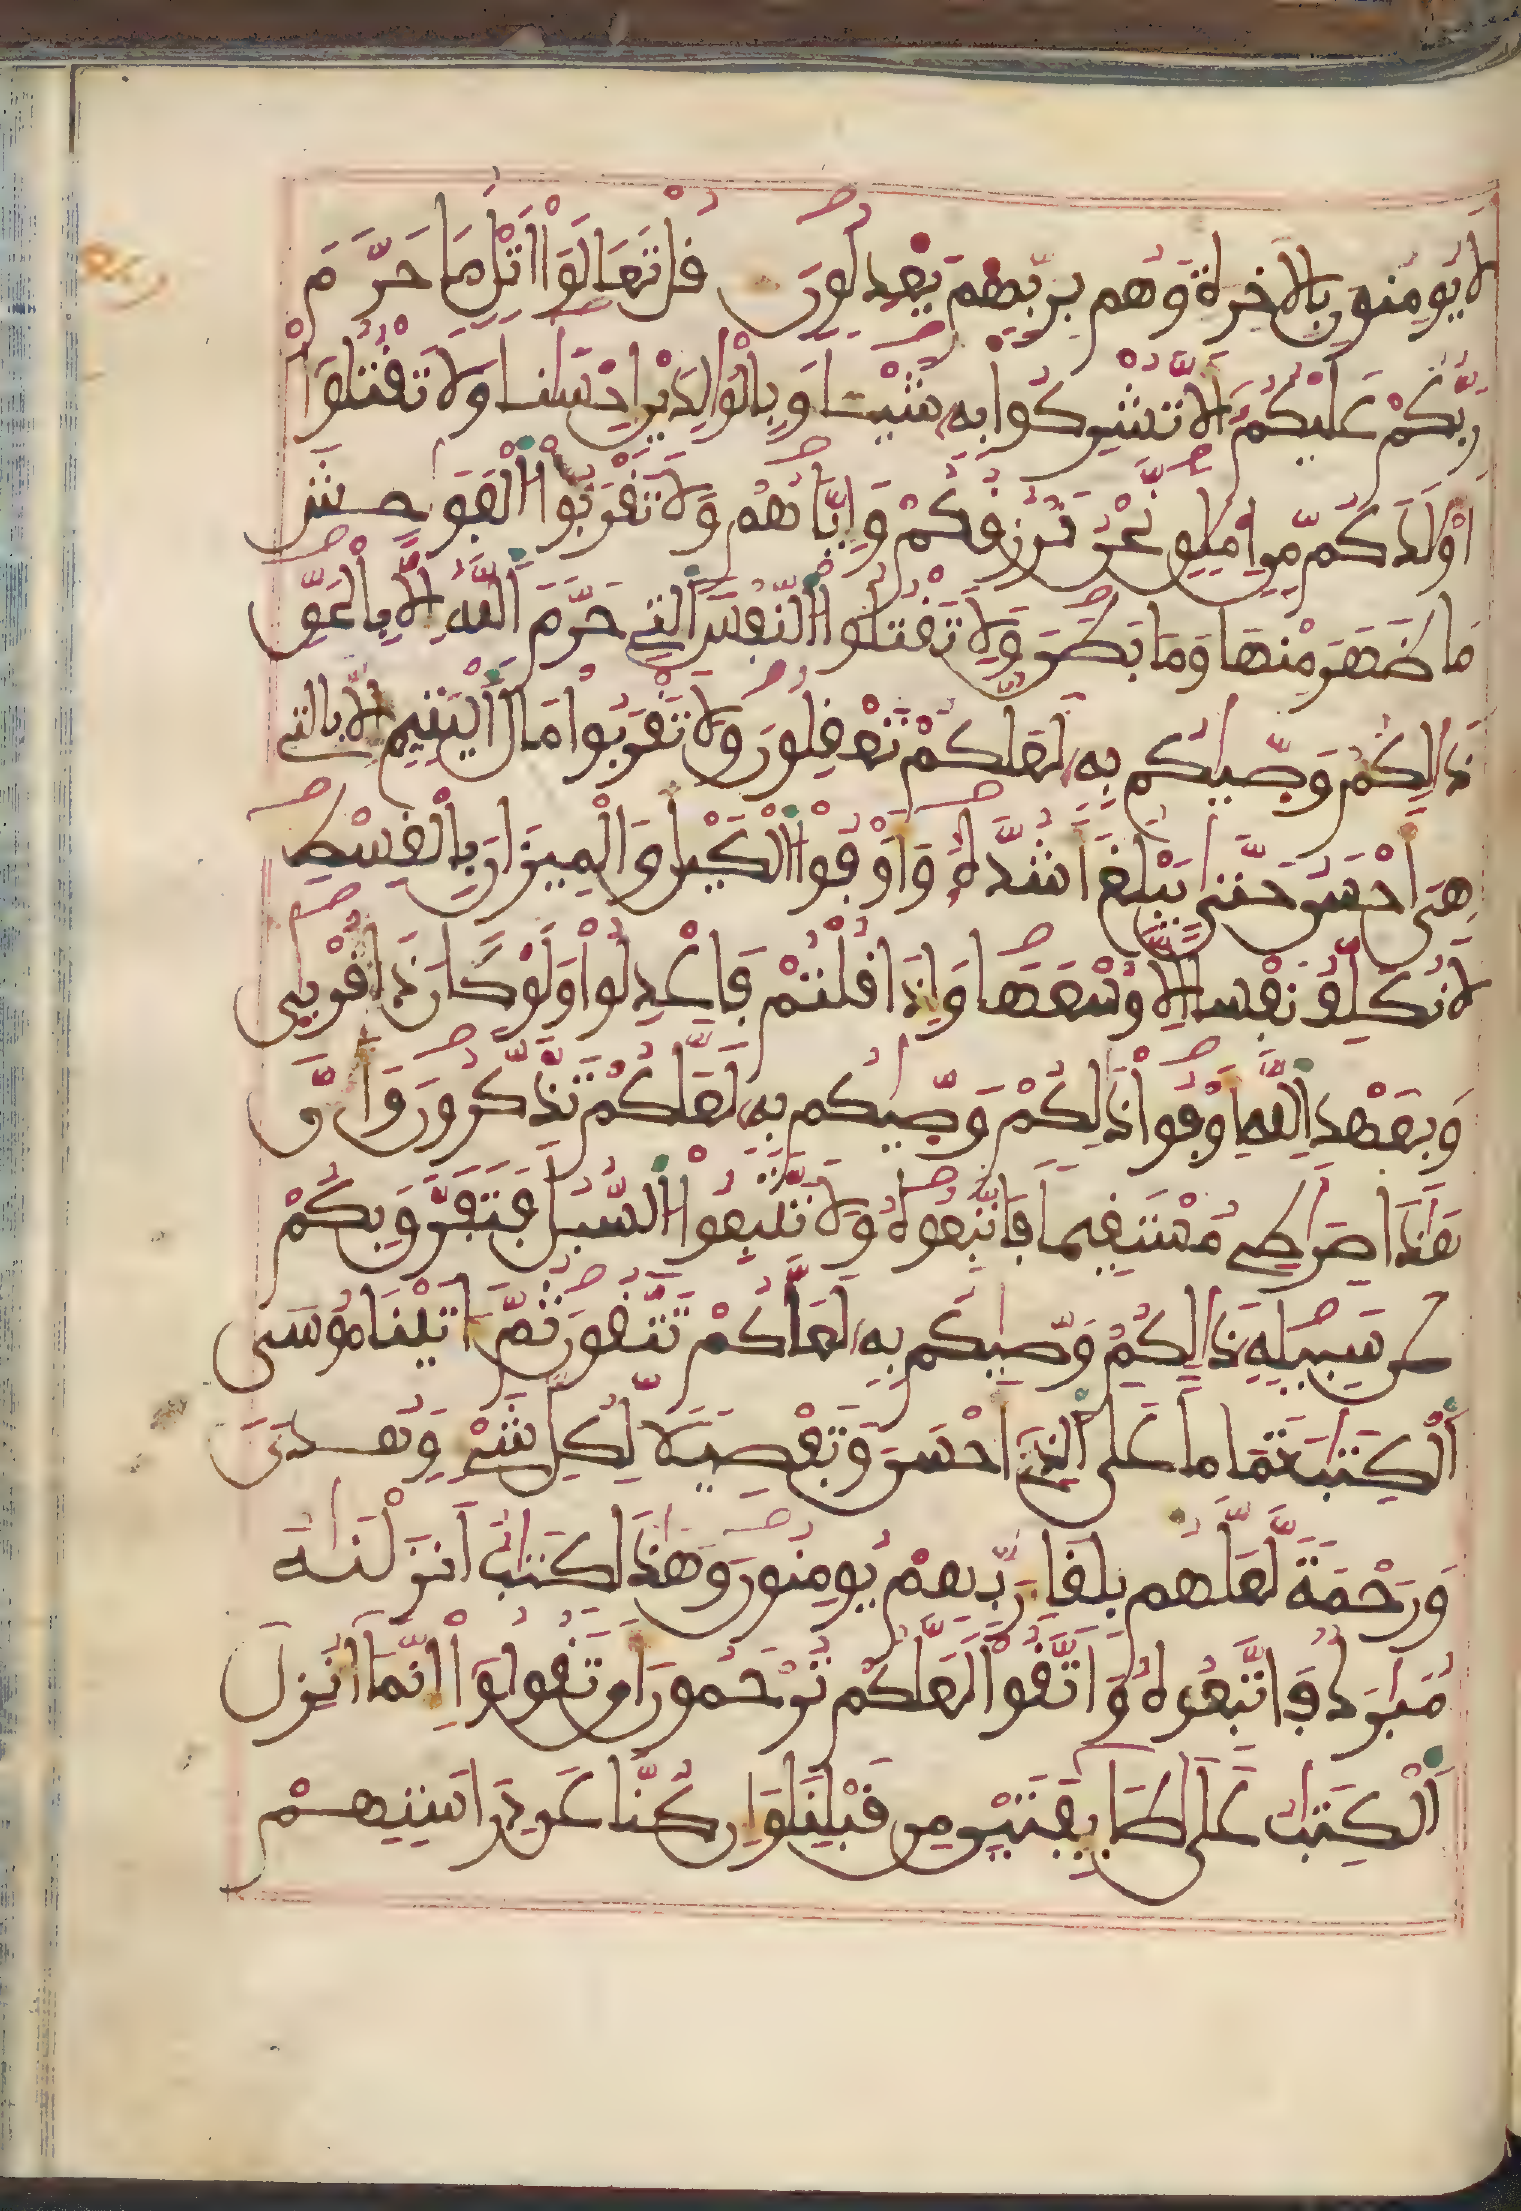 لَا يُومِنُونَ بِالَاخِرَةِ وَهُم بِرَبِّهِمْ يَعْدِلُونَ قُلْ تَعَالَوَاْ اَتْلُ مَا حَرَّمَ
رَبُّكُمْ عَلَيْكُمُ أَلَّا تُشْرِكُواْ بِهِ شَيْـًٔا وَبِالْوَٰلِدَيْنِ إِحْسَٰنًا وَلَا تَقْتُلُواْ
أَوْلَٰدَكُم مِّنِ امْلَٰقٍ نَّحْنُ نَرْزُقُكُمْ وَإِيَّاهُمْ وَلَا تَقْرَبُواْ اُلْفَوَٰحِشَ
مَا ظَهَرَ مِنْهَا وَمَا بَطَنَ وَلَا تَقْتُلُواْ اُلنَّفْسَ اَلتِے حَرَّمَ اَللَّهُ إِلَّا بِالْحَقِّ
ذَٰلِكُمْ وَصَّيٰكُم بِهِ لَعَلَّكُمْ تَعْقِلُونَ وَلَا تَقْرَبُواْ مَالَ اَلْيَتِيمِ إِلَّا بِالتِے
هِيَ أَحْسَنُ حَتَّىٰ يَبْلُغَ أَشُدَّهُ وَأَوْفُواْ اُلْكَيْلَ وَالْمِيزَانَ بِالْقِسْطِ
لَا نُكَلِّفُ نَفْسًا إِلَّا وُسْعَهَا وَإِذَا قُلْتُمْ فَاعْدِلُواْ وَلَوْ كَانَ ذَا قُرْبَىٰ
وَبِعَهْدِ اِللَّهِ أَوْفُواْ ذَٰلِكُمْ وَصَّيٰكُم بِهِ لَعَلَّكُمْ تَذَّكَّرُونَ وَأَنَّ
هَٰذَا صِرَٰطِے مُسْتَقِيمًا فَاتَّبِعُوهُ وَلَا تَتَّبِعُواْ اُلسُّبُلَ فَتَفَرَّقَ بِكُمْ
عَن سَبِيلِهِ ذَٰلِكُمْ وَصَّيٰكُم بِهِ لَعَلَّكُمْ تَتَّقُونَ ثُمَّ ءَاتَيْنَا مُوسَى
اَلْكِتَٰبَ تَمَامًا عَلَى اَلذِے أَحْسَنَ وَتَفْصِيلًا لِّكُلِّ شَےْءٍ وَهُدًى
وَرَحْمَةً لَّعَلَّهُم بِلِقَاءِ رَبِّهِمْ يُومِنُونَ وَهَٰذَا كِتَٰبٌ اَنزَلْنَٰهُ
مُبَٰرَكٌ فَاتَّبِعُوهُ وَاتَّقُواْ لَعَلَّكُمْ تُرْحَمُونَ أَن تَقُولُواْ إِنَّمَا أُنزِلَ
اَلْكِتَٰبُ عَلَىٰ طَائِفَتَيْنِ مِن قَبْلِنَا وَإِن كُنَّا عَن دِرَاسَتِهِمْ